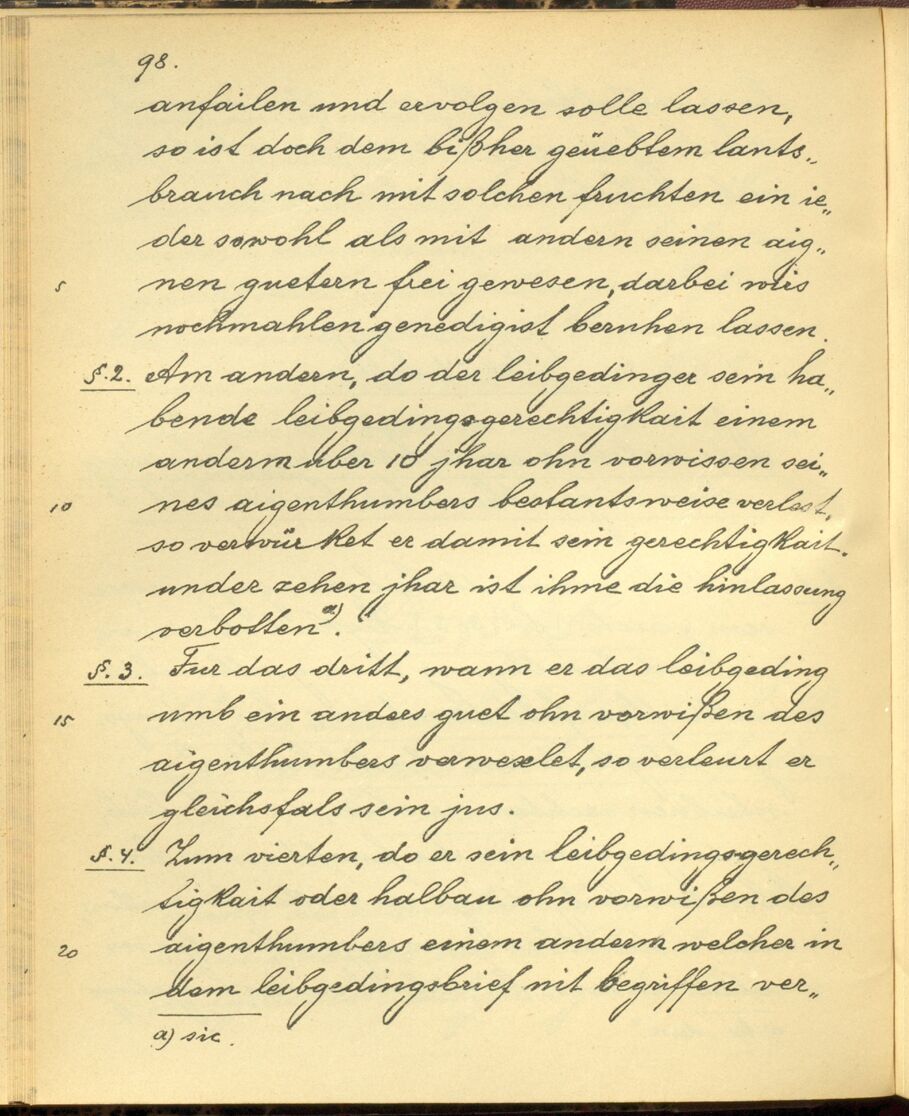 98.
anfailen und ervolgen solle lassen,
so ist doch dem bißher geüebtem lants„
brauch nach mit solchen fruchten ein ie„
der sowohl als mit andern seinen aig„
5 nen guetern frei gewesen, darbei wirs
nochmahlen genedigist beruhen lassen.
§.2. Am andern, do der leibgedinger sein ha„
bende leibgedingsgerechtigkait einem
anderm uber 10 jhar ohn vorwissen sei„
10 nes aigenthumbers bestantsweise verlast,
so verwürket er damit sein gerechtigkait.
under zehen jhar ist ihme die hinlassung
verbotten a).
§.3. Fur das dritt, wann er das leibgeding
15 umb ein anders guet ohn vorwißen des
aigenthumbers verwexlet, so verleurt er
gleichsfals sein jus.
§.4. Zum vierten, do er sein leibgedingsgerech„
tigkait oder halbau ohn vorwißen des
20 aigenthumbers einem anderm welcher in
dem leibgedingsbrief nit begriffen ver„
a) sic.